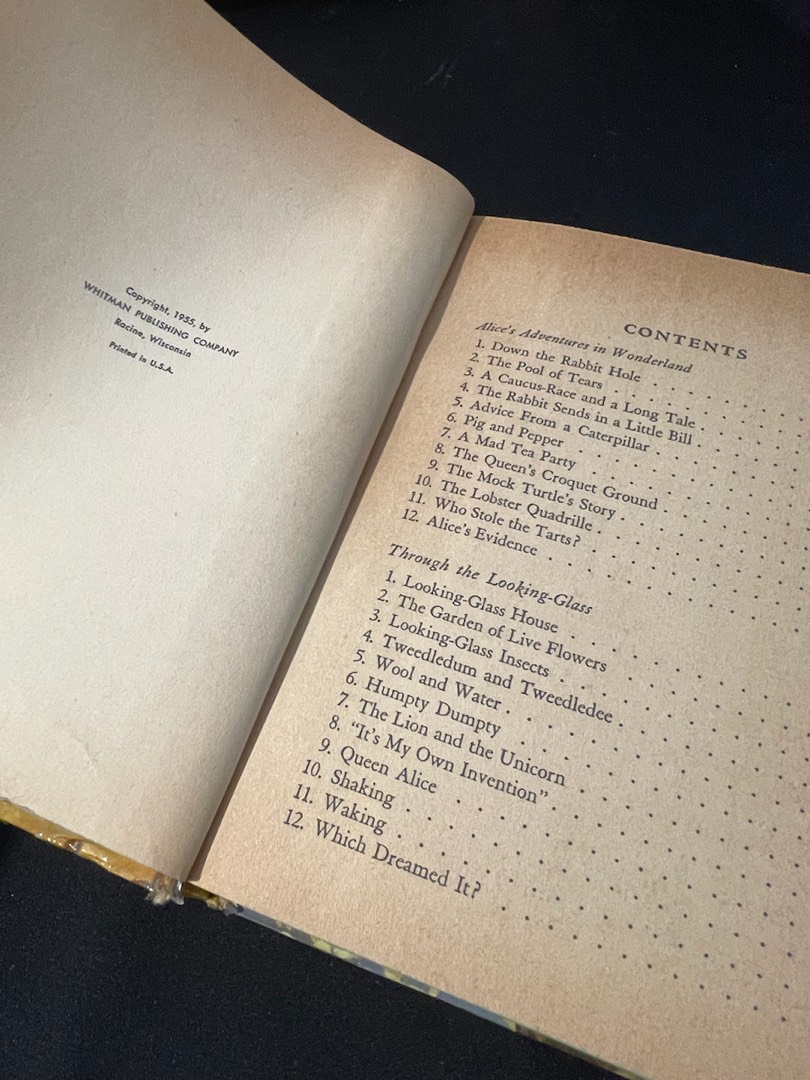 Copyright, 1955, by
WHITMAN PUBLISHING COMPANY
Racine, Wisconsin
Printed in U.S.A.
CONTENTS
Alice's Adventures in Wonderland
1. Down the Rabbit Hole
2. The Pool of Tears
3. A Caucus-Race and a Long Tale
4. The Rabbit Sends in a Little Bill
5. Advice From a Caterpillar
6. Pig and Pepper
7. A Mad Tea Party
8. The Queen's Croquet Ground
9. The Mock Turtle's Story
10. The Lobster Quadrille
11. Who Stole the Tarts?
12. Alice's Evidence
Through the Looking-Glass
1. Looking-Glass House
2. The Garden of Live Flowers
3. Looking-Glass Insects
4. Tweedledum and Tweedledee
5. Wool and Water
6. Humpty Dumpty
7. The Lion and the Unicorn
8. "It's My Own Invention"
9. Queen Alice
10. Shaking
11. Waking
12. Which Dreamed It?